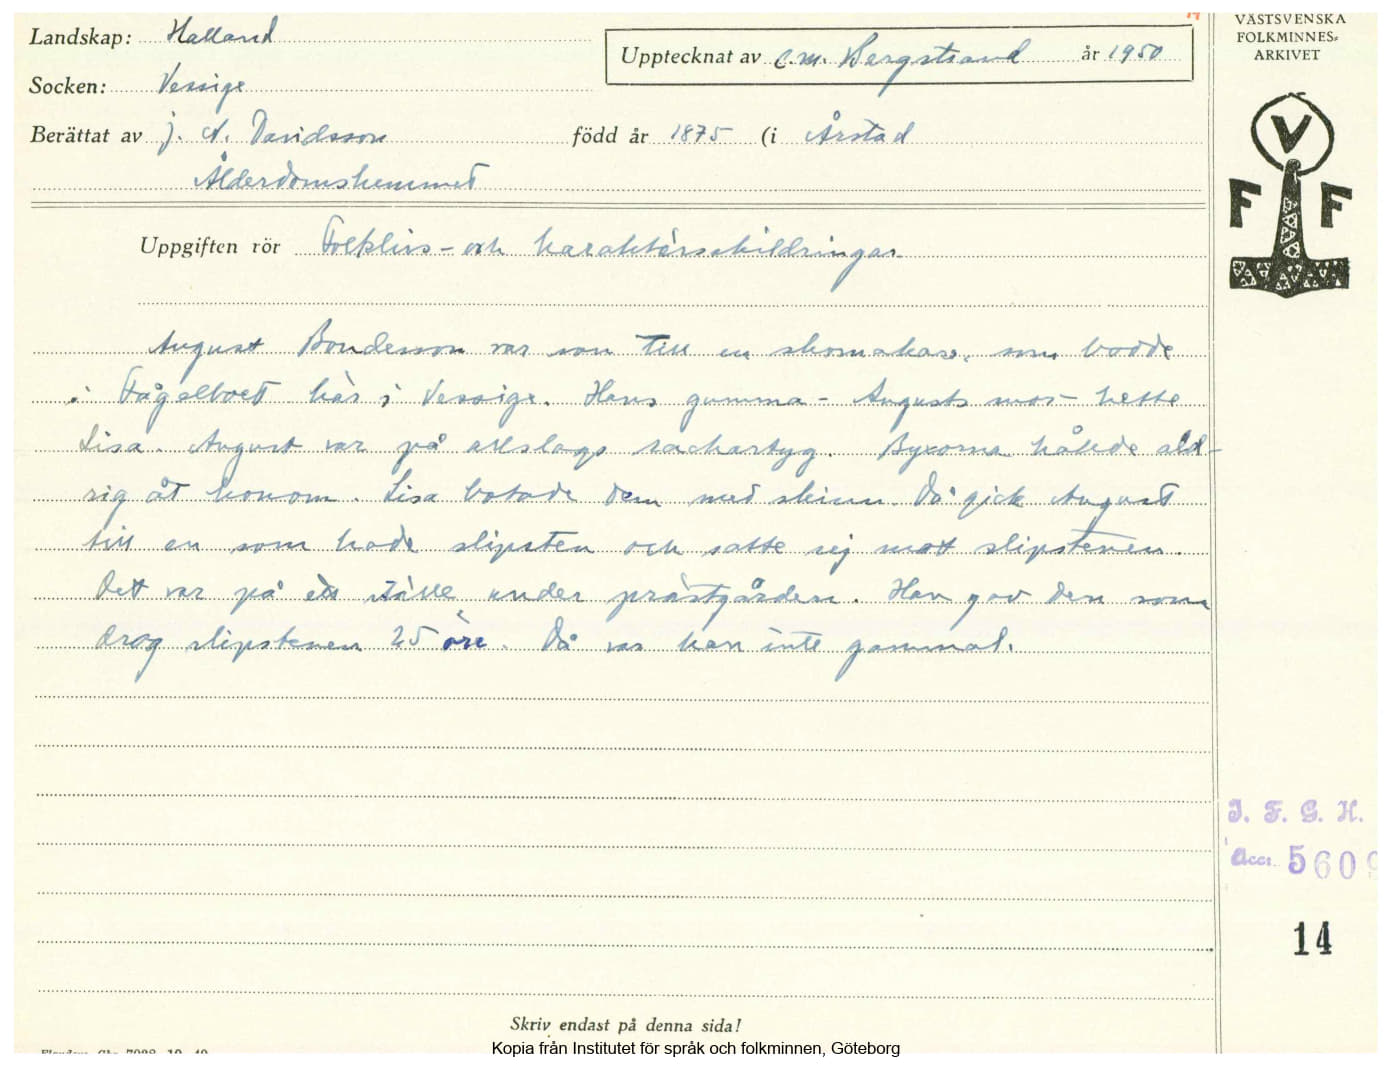 Landskap: Halland
Upptecknat av C.M. Bergstrand år 1950
VÄSTSVENSKA
FOLKMINNES-
ARKIVET
Socken: Vessige
Berättat av J. A. Davidsson född år 1875 (i Årstad
Ålderdomshemmet
V
F F
Uppgiften rör Folklivs- och karaktärsskildringar
August Bondesson var son till en skomakare, som bodde
i Fågelboet här i Vessige. Hans gumma - Augusts mor - hette
Lisa. August var på allslags rackartyg. Byxorna hållde ald-
rig åt honom. Lisa botade dem med skinn. Då gick August
till en som hade slipsten och satte sej mot slipstenen.
Det var på ett ställe under prästgården. Han gav den som
drog slipstenen 25 öre. Då var han inte gammal.
I. F. G. H.
Acc. 5609
14
Skriv endast på denna sida!
Kopia från Institutet för språk och folkminnen, Göteborg